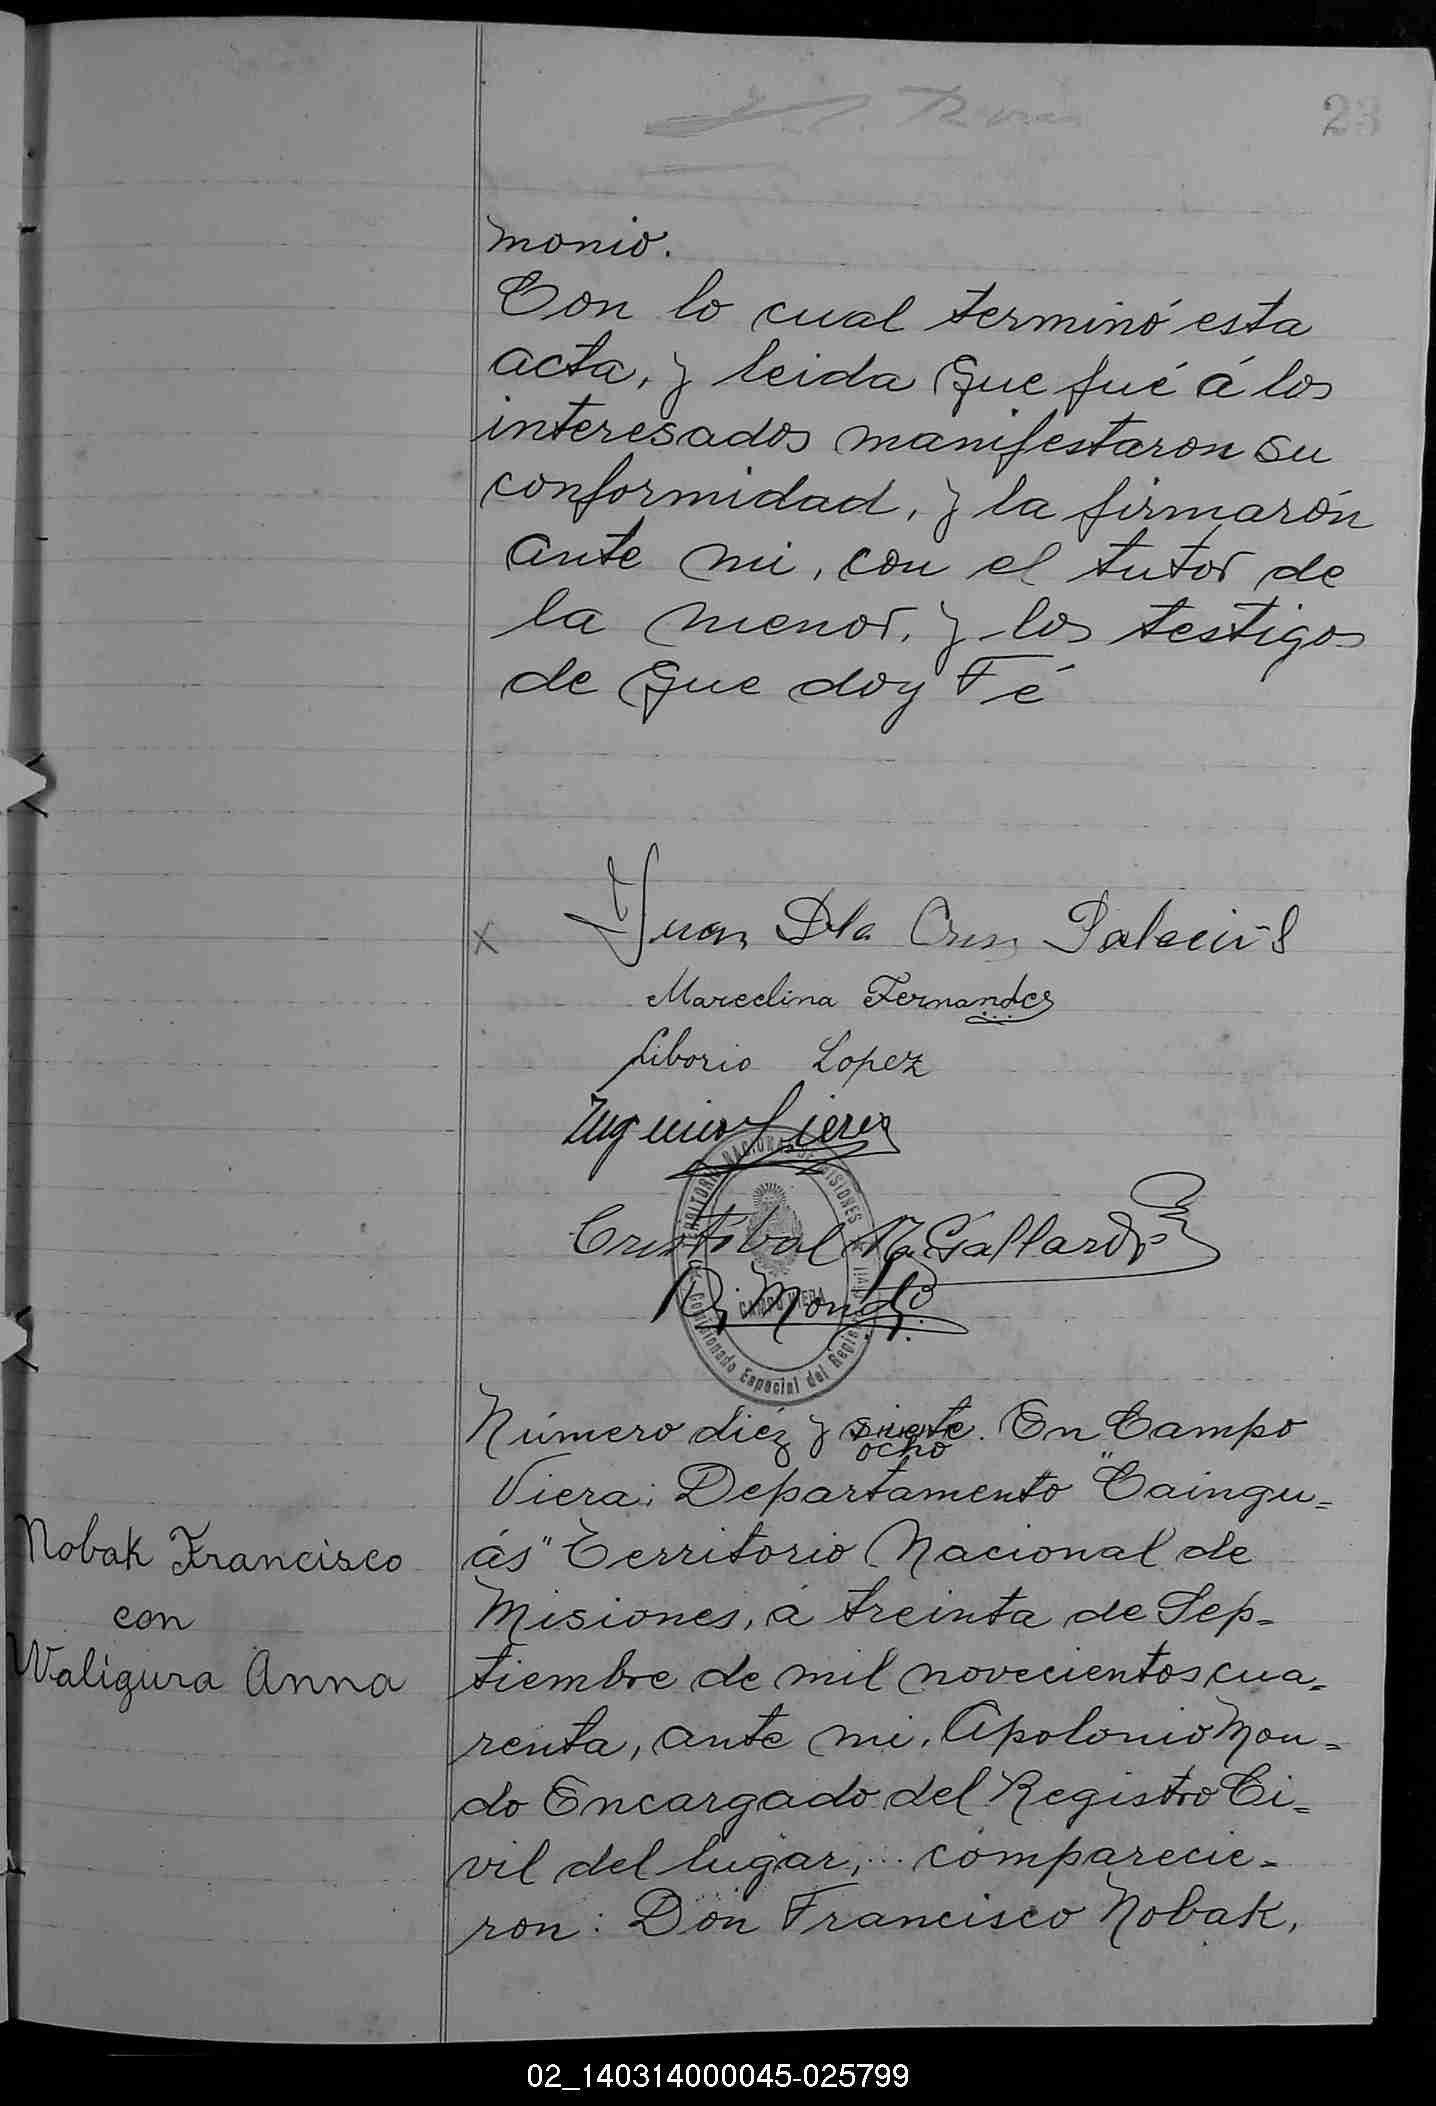 23
monio.
Con lo cual terminó esta
acta, y leida que fué á los
interesados manifestaron su
conformidad, y la firmarón
ante mi, con el tutor de
la menor, y los testigos
de que doy Fé
x Juan Dla Cruz Palacios
Marcelina Fernandez
Liborio Lopez
Cristobal Gallardo
TERRITORIO NACIONAL DE MISIONES
CAMPO VIERA
Comisionado Especial del Registro Civil
Número diéz y siete. En Campo
ocho
Viera; Departamento "Caingu=
ás" Territorio Nacional de
Misiones, á treinta de Sep=
tiembre de mil novecientos cua=
renta, ante mi, Apolonio Mon=
do Encargado del Registro Ci=
vil del lugar, comparecie=
ron: Don Francisco Nobak,
Nobak Francisco
con
Waligura Anna
02_140314000045-025799